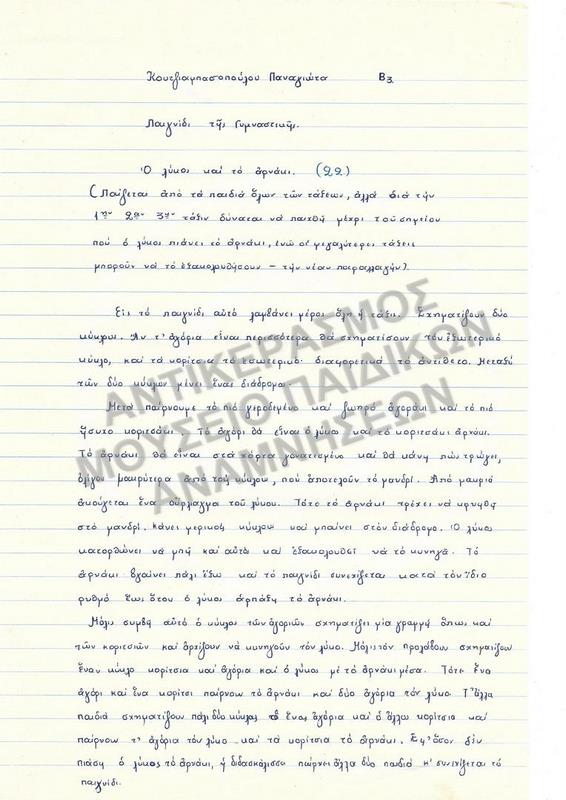 Κουτζιαμπασοπούλου Παναγιώτα Β3
Παιχνίδι τῆς Γυμναστικῆς.
Ὁ λύκος καὶ τὸ ἀρνάκι. (22)
(Παίζεται ἀπὸ τὰ παιδιὰ ὅλων τῶν τάξεων, ἀλλὰ διὰ τὴν
1ην 2αν 3ην τάξιν δύναται νὰ παιχθῇ μέχρι τοῦ σημείου
ποὺ ὁ λύκος πιάνει τὸ ἀρνάκι, ἐνῶ οἱ μεγαλύτεροι τάξεις
μποροῦν νὰ τὸ ἐξακολουθήσουν - τὴν νέαν παραλλαγήν).
Εἰς τὸ παιχνίδι αὐτὸ λαμβάνει μέρος ὅλη ἡ τάξις. Σχηματίζουν δύο
κύκλους. Ἂν τ' ἀγόρια εἶναι περισσότερα θὰ σχηματίσουν τὸν ἐξωτερικὸ
κύκλο, καὶ τὰ κορίτσια τὸ ἐσωτερικό· διαφορετικὰ τὸ ἀντίθετο. Μεταξὺ
τῶν δύο κύκλων μένει ἕνας διάδρομος.
Μετὰ παίρνουμε τὸ πιὸ γεροδεμένο καὶ ζωηρὸ ἀγοράκι καὶ τὸ πιὸ
ἥσυχο κοριτσάκι. Τὸ ἀγόρι θὰ εἶναι ὁ λύκος καὶ τὸ κοριτσάκι ἀρνάκι.
Τὸ ἀρνάκι θὰ εἶναι στὰ χόρτα γονατισμένο καὶ θὰ κάνῃ πὼς τρώγει,
ὀλίγον μακρύτερα ἀπὸ τοὺς κύκλους, ποὺ ἀποτελοῦν τὸ μανδρί. Ἀπὸ μακριὰ
ἀκούγεται ἕνα οὔρλιαγμα τοῦ λύκου. Τότε τὸ ἀρνάκι τρέχει νὰ κρυφθῇ
στὸ μανδρί. Κάνει μερικοὺς κύκλους καὶ μπαίνει στὸν διάδρομο. Ὁ λύκος
κατορθώνει νὰ μπῇ καὶ αὐτὸς καὶ ἐξακολουθεῖ νὰ τὸ κυνηγᾶ. Τὸ
ἀρνάκι βγαίνει πάλι ἔξω καὶ τὸ παιχνίδι συνεχίζεται κατὰ τὸν ἴδιο
ρυθμὸ ἕως ὅτου ὁ λύκος ἁρπάξη τὸ ἀρνάκι.
Μόλις συμβῇ αὐτὸ ὁ κύκλος τῶν ἀγοριῶν σχηματίζει μία γραμμὴ ὅπως καὶ
τῶν κοριτσιῶν καὶ ἀρχίζουν νὰ κυνηγοῦν τὸν λύκο. Μόλις τὸν προλάβουν σχηματίζουν
ἕναν κύκλο κορίτσια καὶ ἀγόρια καὶ ὁ λύκος μὲ τὸ ἀρνάκι μέσα. Τότε ἕνα
ἀγόρι καὶ ἕνα κορίτσι παίρνουν τὸ ἀρνάκι καὶ δύο ἀγόρια τὸν λύκο. Τ' ἄλλα
παιδιὰ σχηματίζουν πάλι δύο κύκλους ὁ ἕνας ἀγόρια καὶ ὁ ἄλλος κορίτσια καὶ
παίρνουν τ' ἀγόρια τὸν λύκο καὶ τὰ κορίτσια τὸ ἀρνάκι. Ἐφ' ὅσον δὲν
πιάσῃ ὁ λύκος τὸ ἀρνάκι, ἡ διδασκάλισσα παίρνει ἄλλα δύο παιδιὰ κ' συνεχίζεται τὸ
παιχνίδι.
ΑΝΤΙΚΕΡΑΣΜΟΣ
ΜΟΥΣΕΙΟ ΠΑΙΔΙΚΩΝ
ΑΝΑΜΝΗΣΕΩΝ